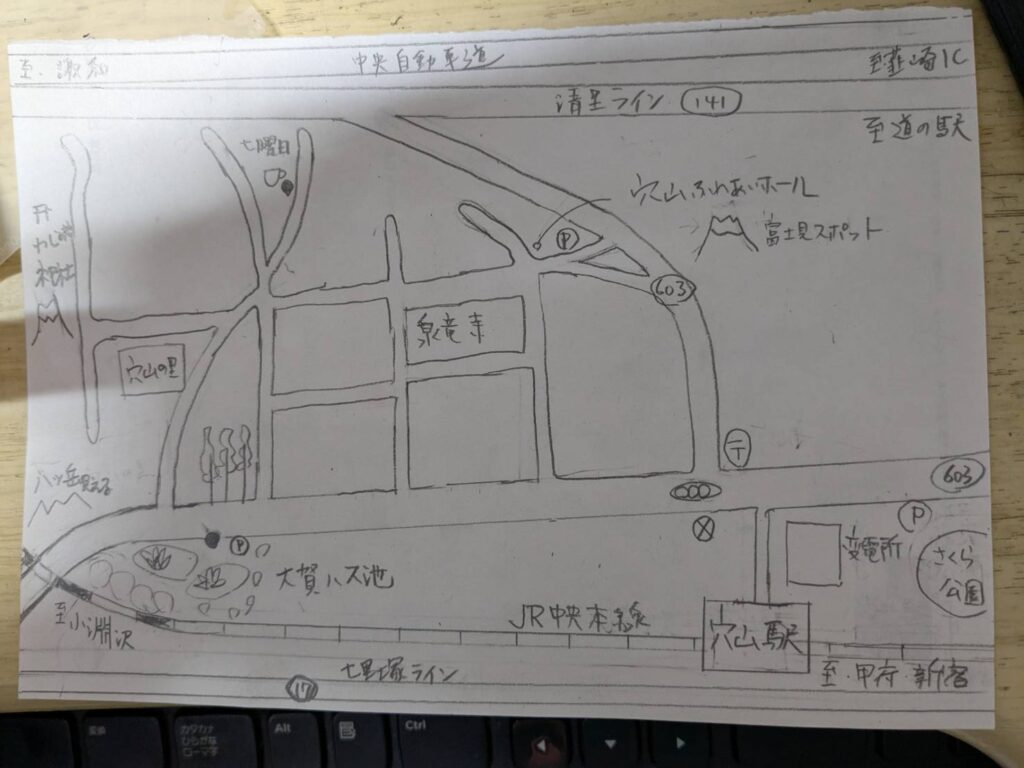 中央自動車道
至・諏訪
至韮崎IC
清里ライン 141
至道の駅
七曜日
穴山ふれあいホール
富士見スポット
P
603
神社
泉竜寺
穴山の里
〒
603
八ヶ岳見える
P
変電所
さくら
公園
P
大賀ハス池
至小淵沢
JR中央本線
穴山駅
至・甲府・新宿
七里塚ライン
17
変換
カタカナ
ひらがな
ローマ字
Alt
Ctrl